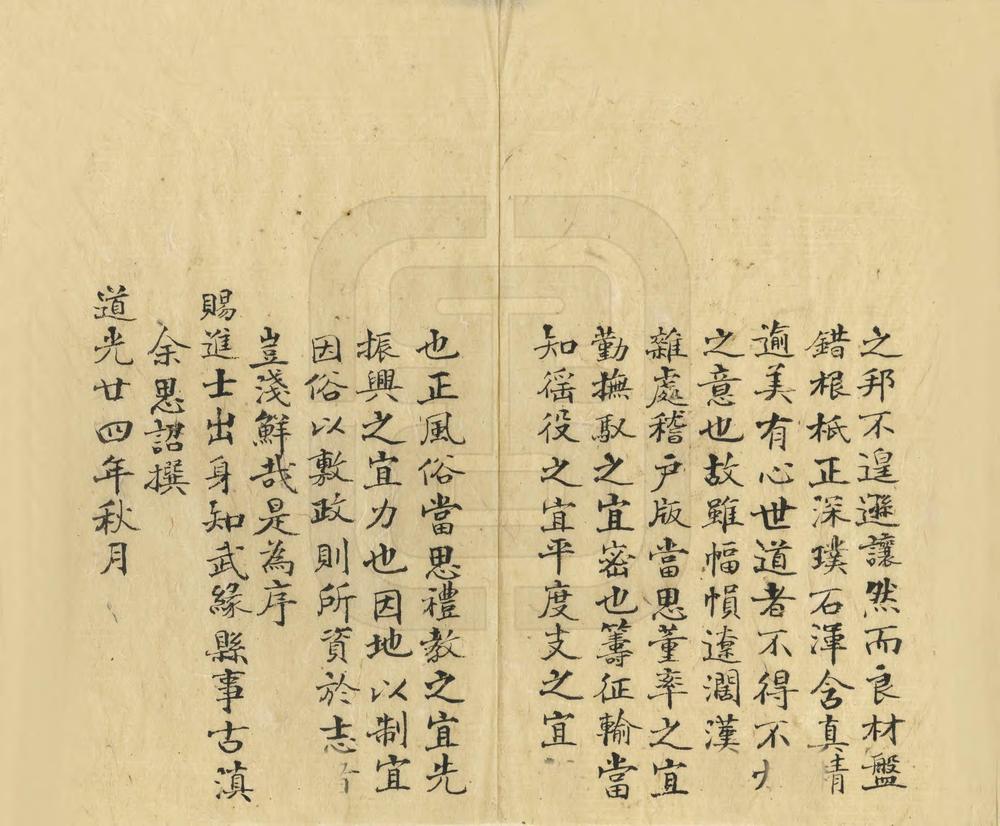 之邦不遑遜讓然而良材盤
錯根柢正深璞石渾含真青
逾美有心世道者不得不
之意也故雖幅幀遼濶漢
雜處稽户版當思董率之宜
勤撫馭之宜密也籌征輸當
知徭役之宜平度支之宜
也正風俗當思禮教之宜先
振興之宜力也因地以制宜
因俗以敷政則所資於志
豈淺鮮哉是為序
賜進士出身知武緣縣事古滇
余思詔撰
道光廿四年秋月